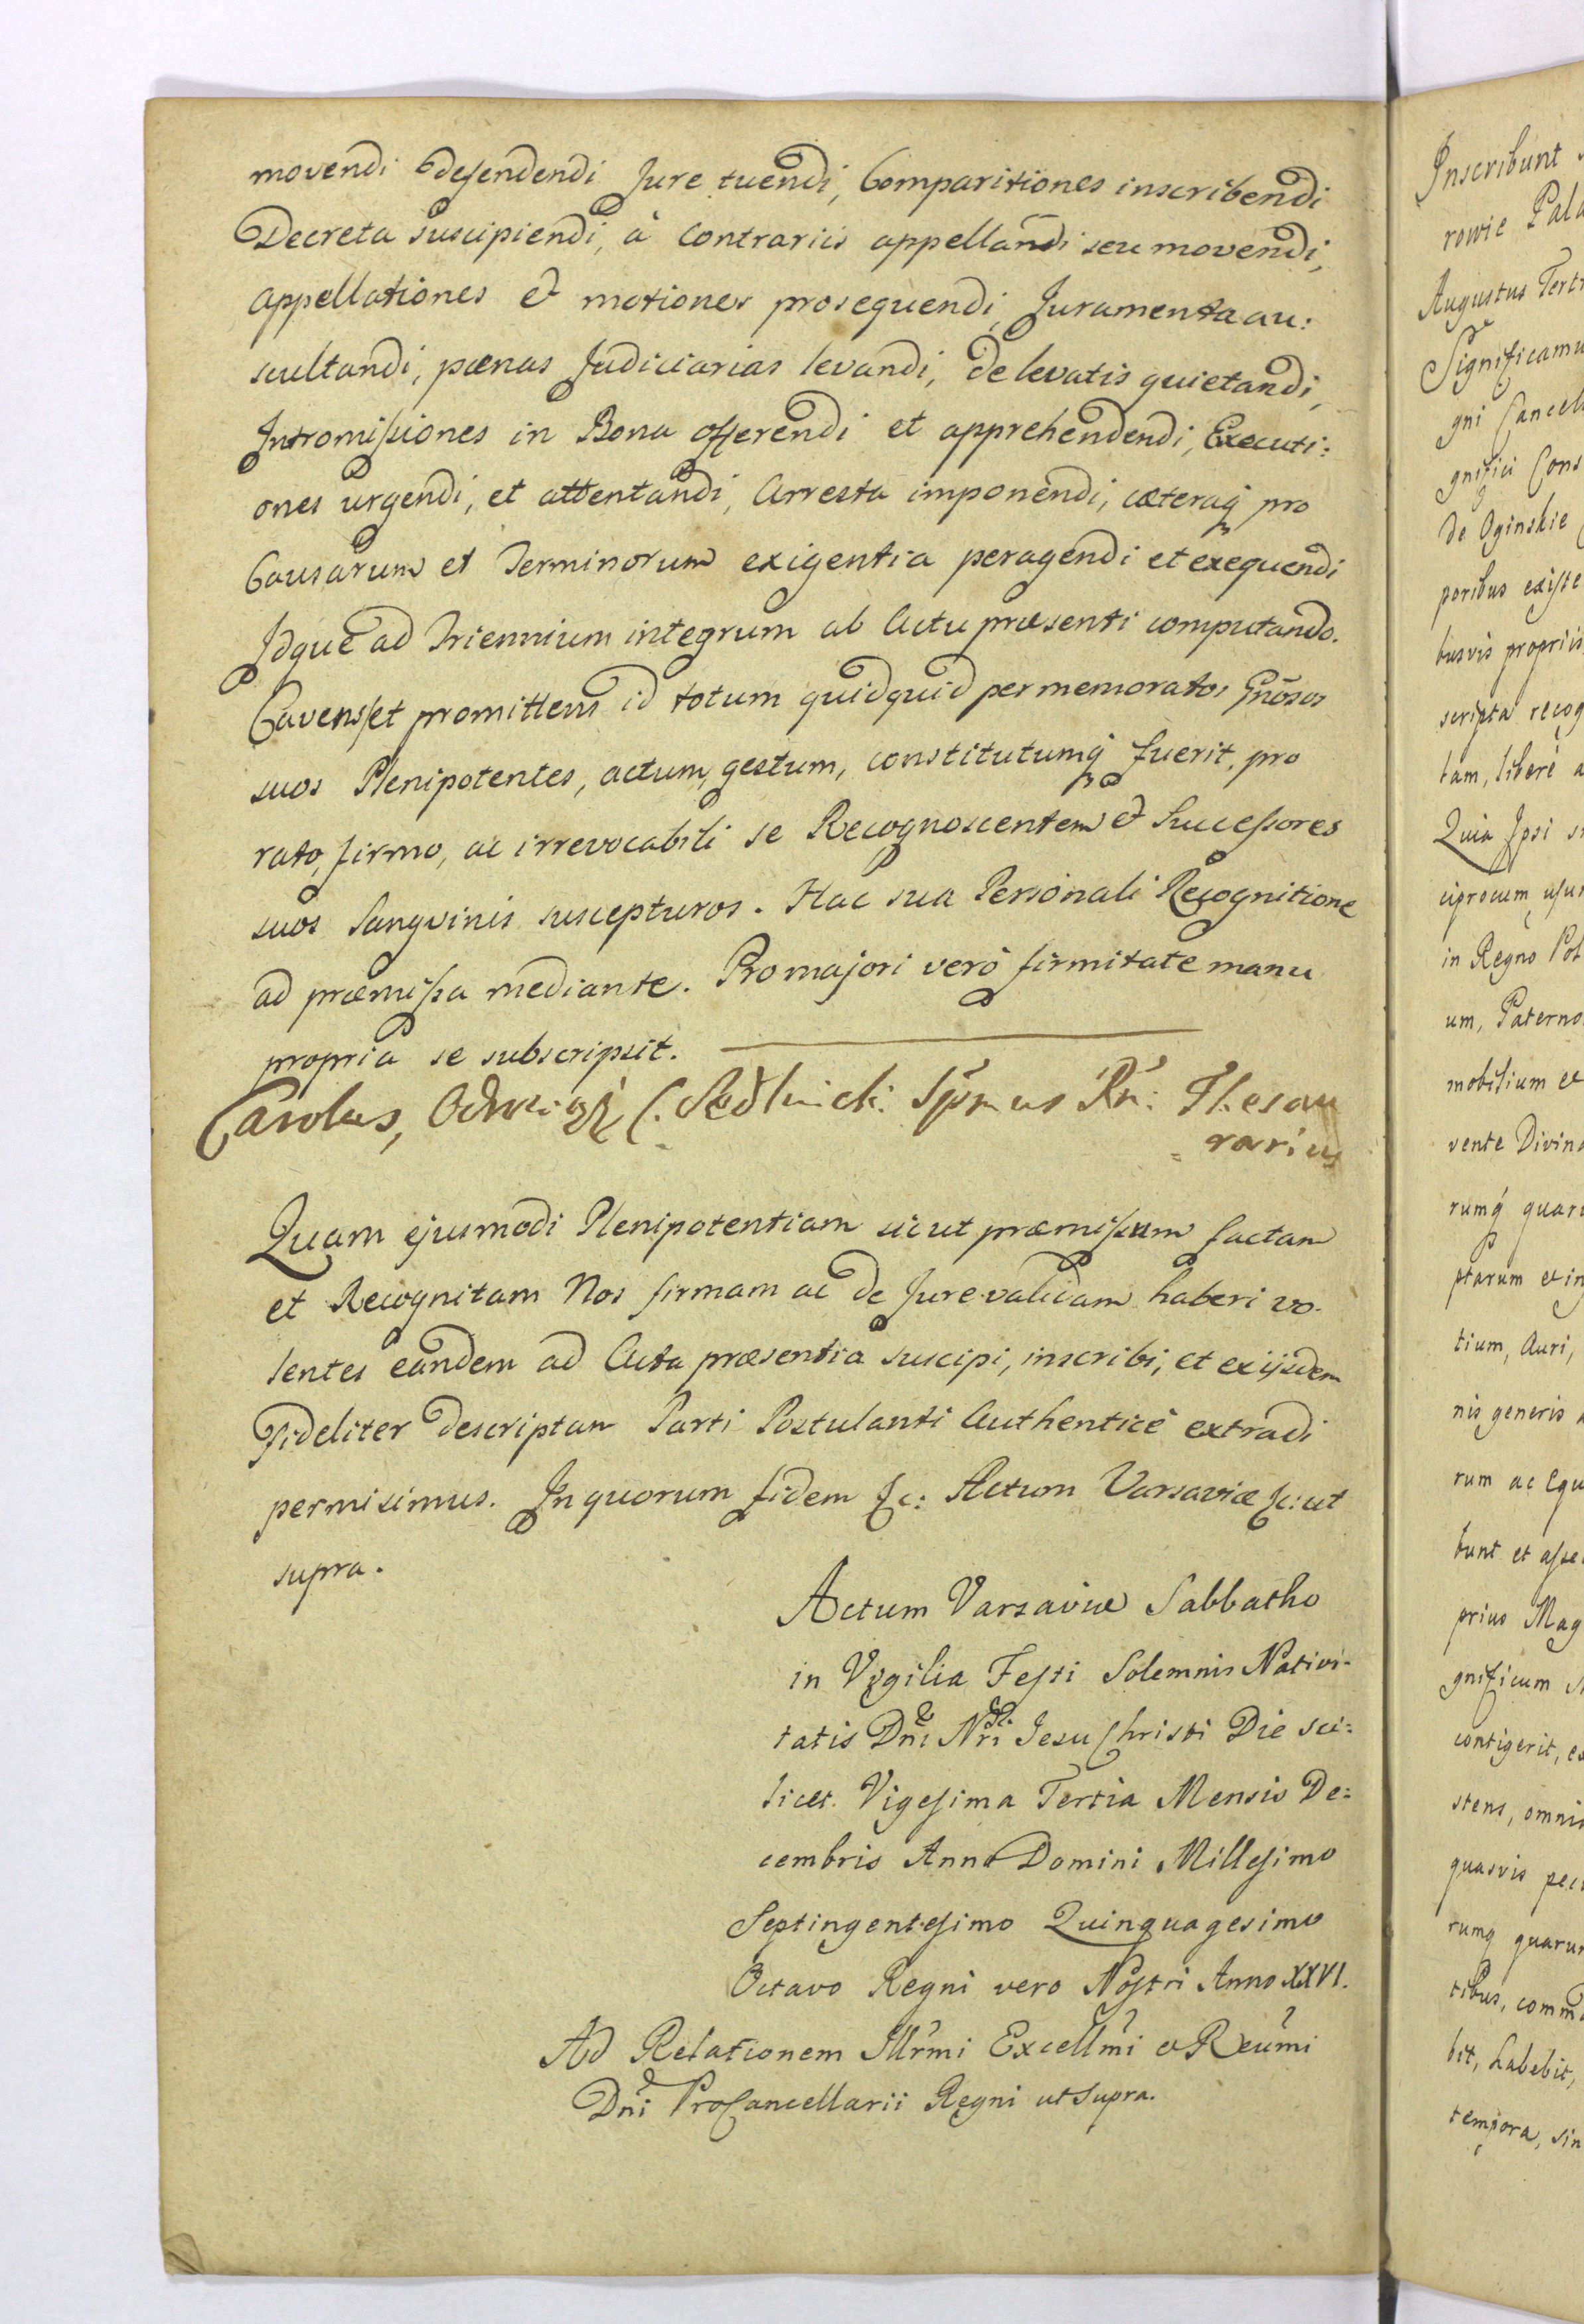 movendi defendendi Jure tuendi, Comparitiones inscribendi
Decreta suscipiendi, à Contrariis appellandi seu movendi,
appellationes et motiones prosequendi, Juramenta au:
scultandi, pænas Judiciarias levandi, de levatis quietandi,
Intromissiones in Bona offerendi et apprehendendi, Executi:
ones urgendi, et attentandi, Arresta imponendi, cæteraq pro
Causarum et Terminorum exigentia peragendi et exequendi
Idque ad Triennium integrum ab Actu præsenti computando.
Cavens et promittens id totum quidquid per memoratos Gnosos
suos Plenipotentes, actum, gestum, constitutumq fuerit, pro
rato, firmo, ac irrevocabili se Recognoscentem et Successores
suos Sangvinis suscepturos. Hac sua Personali Recognitione
ad præmissa mediante. Pro majori verò firmitate manu
propria se subscripsit.
Carolus, Sedlnicki Spmus Rn: Thesau
rarius
Quam ejusmodi Plenipotentiam sicut præmissum factam
et Recognitam Nos firmam ac de Jure validam haberi vo-
lentes eandem ad Acta præsentia suscipi, inscribi, et ex ijsdem
Fideliter descriptam Parti Postulanti Authenticè extradi
permisimus. In quorum fidem &c: Actum Varsaviæ &c: ut
supra.
Actum Varsaviæ Sabbatho
in Vigilia Festi Solemnis Nativi-
tatis Dni Nri Jesu Christi Die sci:
licet. Vigesima Tertia Mensis De:
cembris Anno Domini Millesimo
Septingentesimo Quinquagesimo
Octavo Regni vero Nostri Anno XXVI.
Ad Relationem Illrmi Excellmi et Reumi
Dni ProCancellarii Regni ut Supra.
Inscribunt
rowie Pala
Augustus Terti
Significamu
gni Cancel
gnifici Cons
de Oginskie
poribus existe
busvis propriis
scripta recog
tam, liberè a
Quia Ipsi
ciprocum usu
in Regno Pol
um, Paterno
mobilium et
vente Divina
rumq quar
ptarum et in
tium, Auri,
nis generis
rum ac Equ
bunt et asse
prius Mag
gnificum
contigerit, e
stens, omni
quasvis pec
rumq quaru
tibus, comm
bit, habebit,
tempora, sin